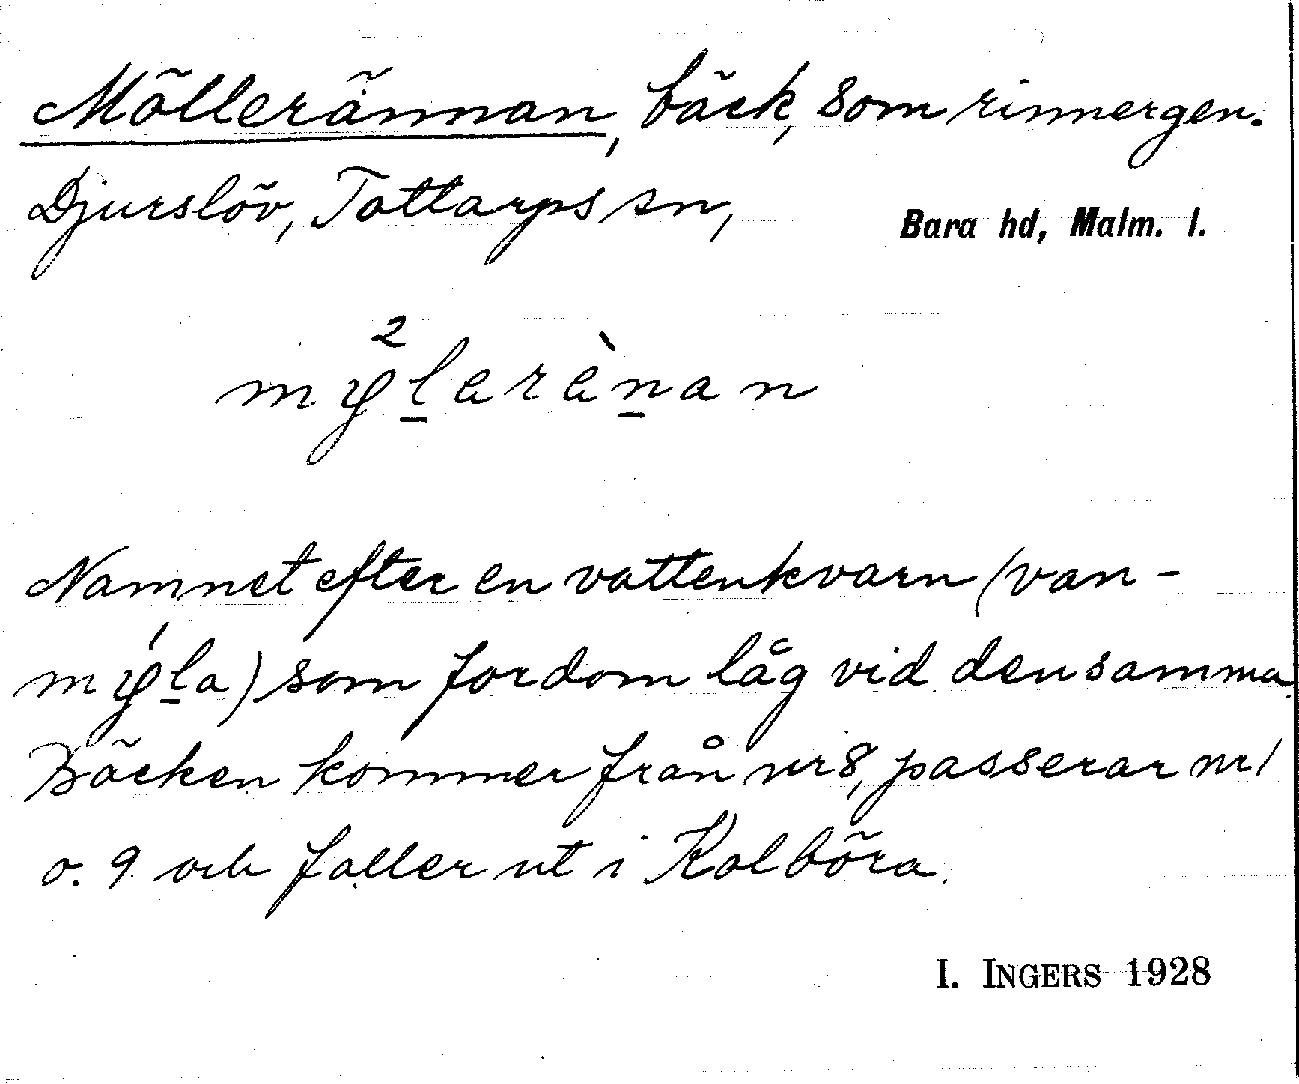 Möllerännan, bäck, som rinner gen.
Djurslöv, Tottarps sn, Bara hd, Malm. l.
Namnet efter en vattenkvarn (van-
som fordom låg vid densamma.
Bäcken kommer från nr 8, passerar nr 1
o. 9 och faller ut i Kalböra.
I. INGERS 1928